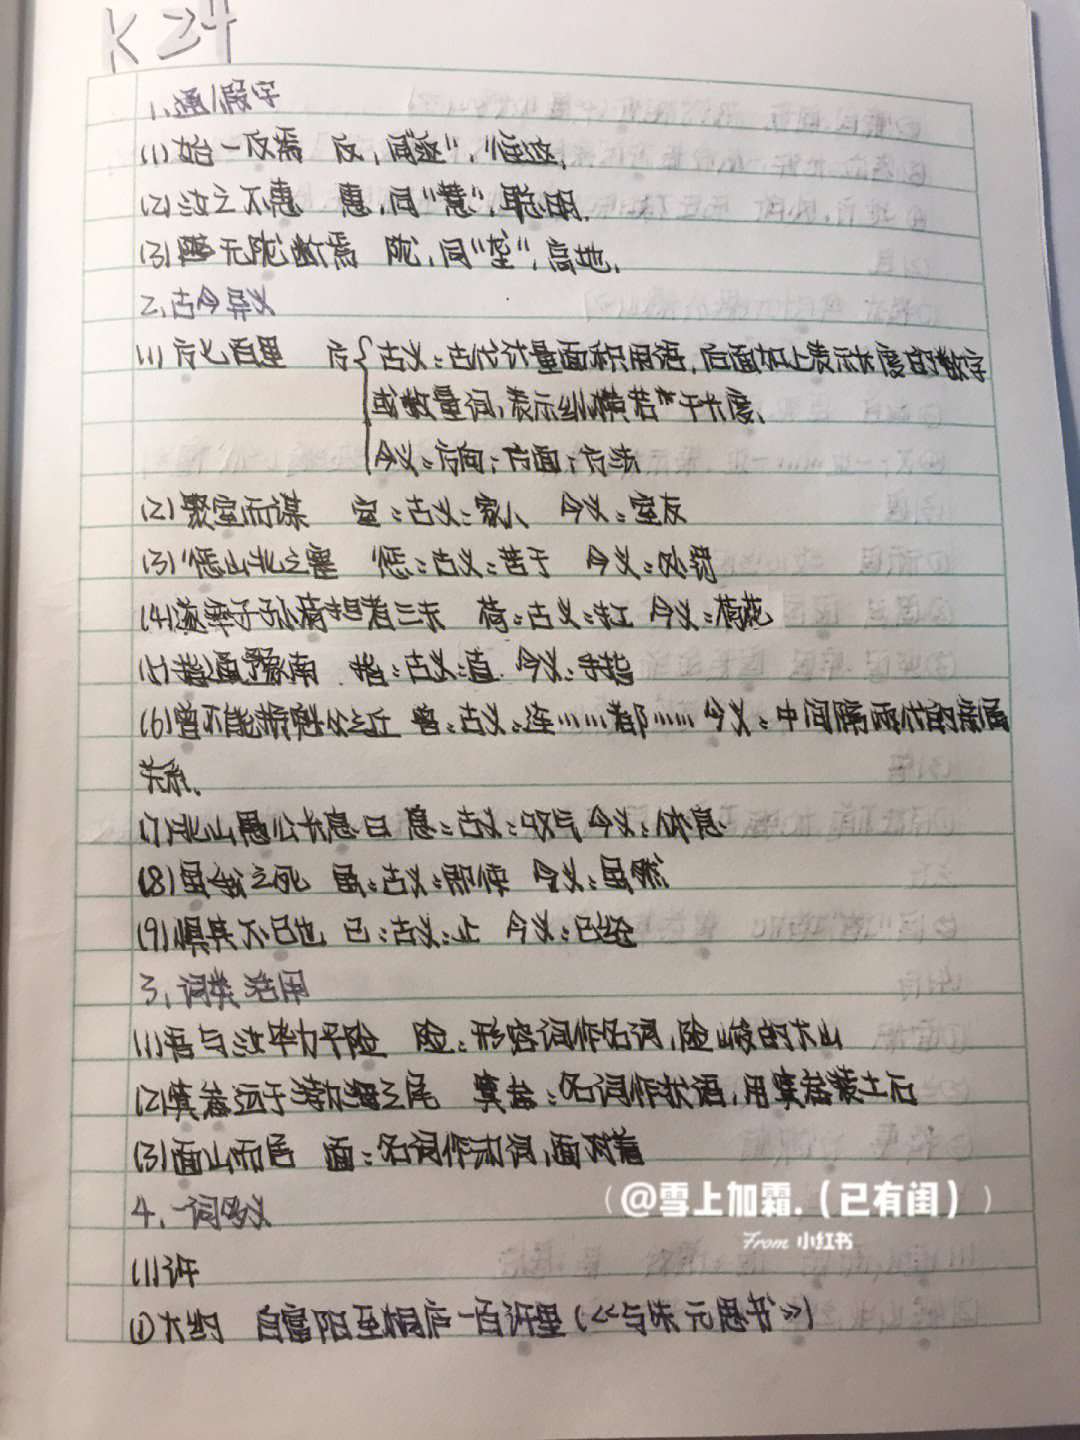 K24
1.通假字
(1)始一反焉 反,同"返",往返.
(2)汝之不惠 惠,同"慧",聪明.
(3)无陇断焉 陇,同"垄",高地.
2.古今异义
(1)方七百里 方 古义:古代计量面积用语,后面加上表示长度的数字
或数量词,表示纵横若干长度.
今义:方向;方面;方形
(2)聚室而谋 室:古义:家人 今义:室友
(3)惩山北之塞 惩:古义:苦于 今义:惩罚
(4)遂率子孙荷担者三夫 荷:古义:扛 今义:荷花
(5)指通豫南 指:古义:直 今义:手指
(6)曾不能损魁父之丘 曾:古义:连……都…… 今义:中间隔两代的亲属
关系.
(7)北山愚公长息曰 息:古义:叹气 今义:休息
(8)固 今义:固
(9)惧其不已也 已:古义:止 今义:已经
3.词类活用
(1)吾与汝毕力平险 险:形容词作名词,险峻的大山
(2)箕畚运于渤海之尾 箕畚:名词作状语,用箕畚装土石
(3)面山而居 面:名词作动词,面对着
4.一词多义
(1)许
①大约 自富阳至桐庐一百许里(《与朱元思书》)
(@雪上加霜.(已有闺))
From 小红书